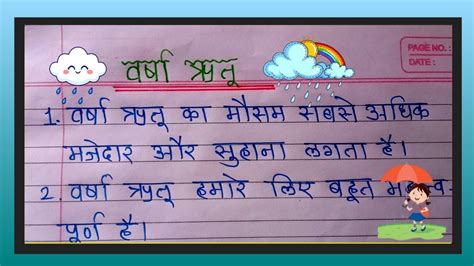 PAGE NO.:
DATE:
वर्षा ऋतू
1. वर्षा ऋतू का मौसम सबसे अधिक
मजेदार और सुहाना लगता है।
2. वर्षा ऋतू हमारे लिए बहुत
पूर्ण है।